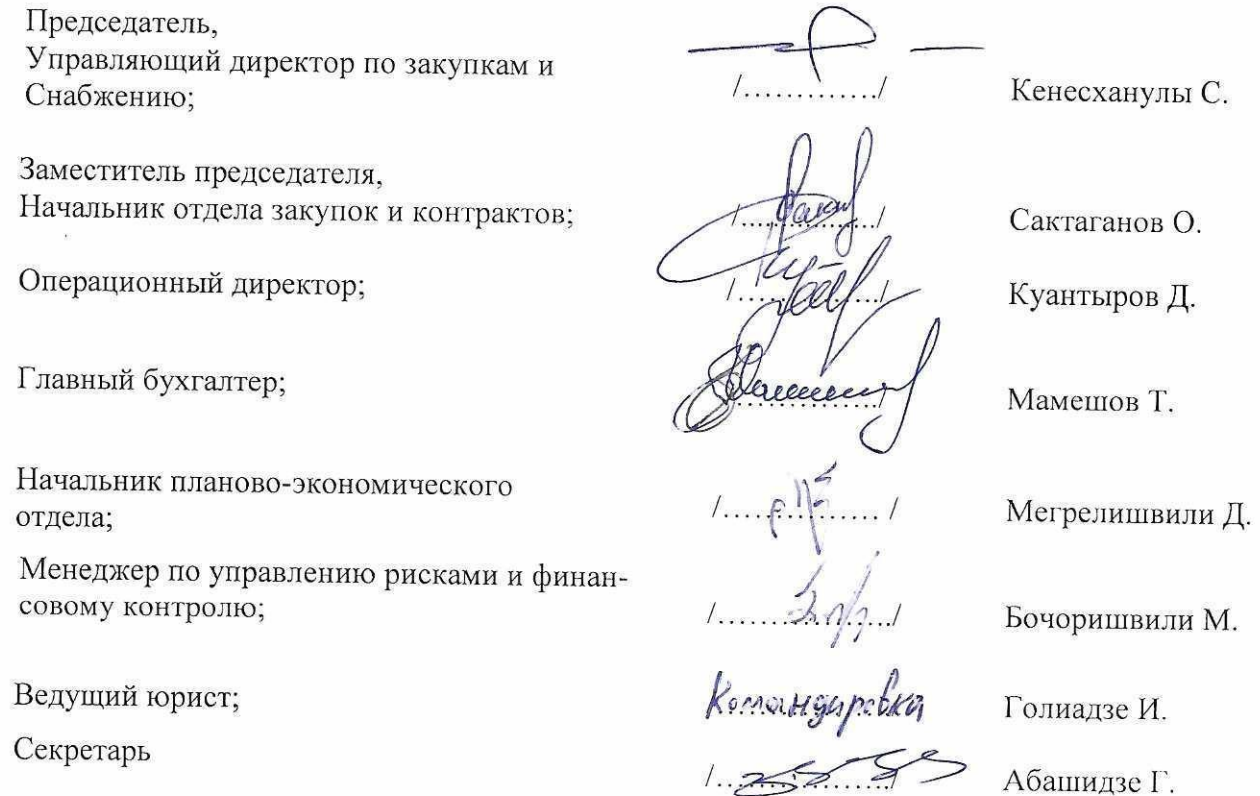 Председатель,
Управляющий директор по закупкам и
Снабжению; /............./ Кенесханулы С.
Заместитель председателя,
Начальник отдела закупок и контрактов; /............./ Сактаганов О.
Операционный директор; /............./ Куантыров Д.
Главный бухгалтер; /............./ Мамешов Т.
Начальник планово-экономического
отдела; /............... / Мегрелишвили Д.
Менеджер по управлению рисками и финан-
совому контролю; /.............../ Бочоришвили М.
Ведущий юрист; Командировка Голиадзе И.
Секретарь /.............../ Абашидзе Г.